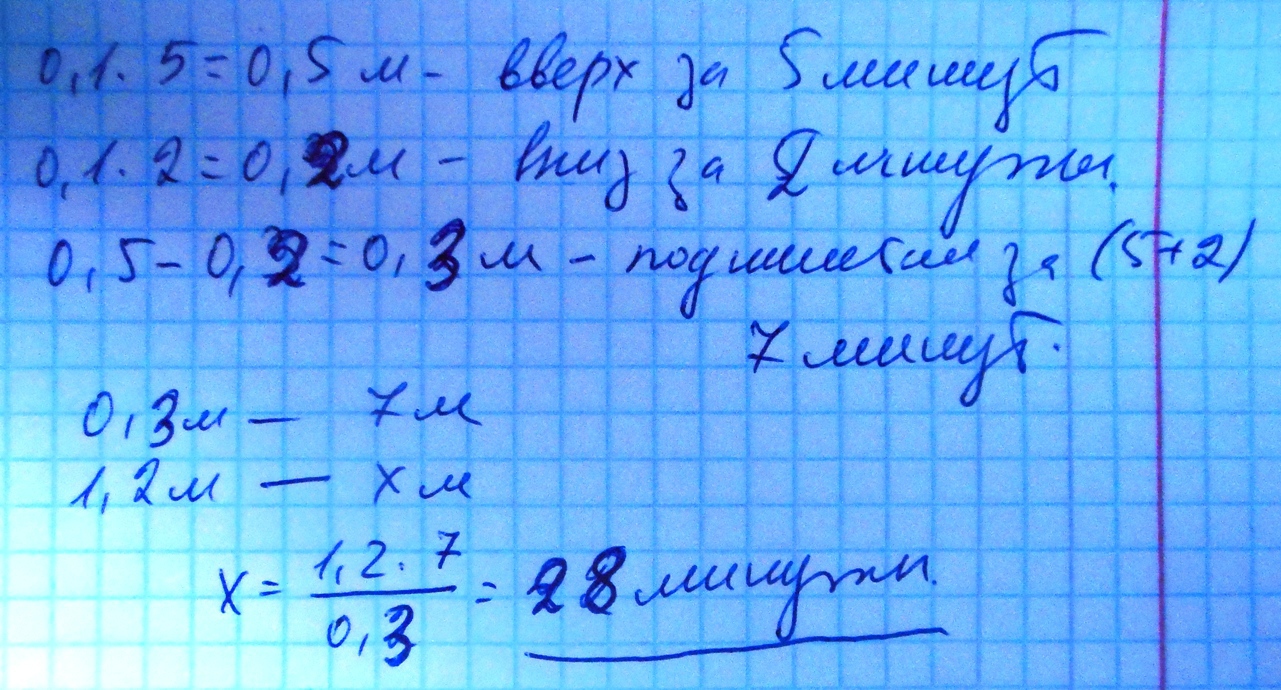 0,1·5=0,5м- вверх за 5 минут
0,1·2=0,2м - вниз за 2 минуты.
0,5-0,2=0,3м - поднимется за (5+2)
7 минут.
0,3м — 7м
1,2м — xм
x = 1,2·7 / 0,3 = 28 минуты.